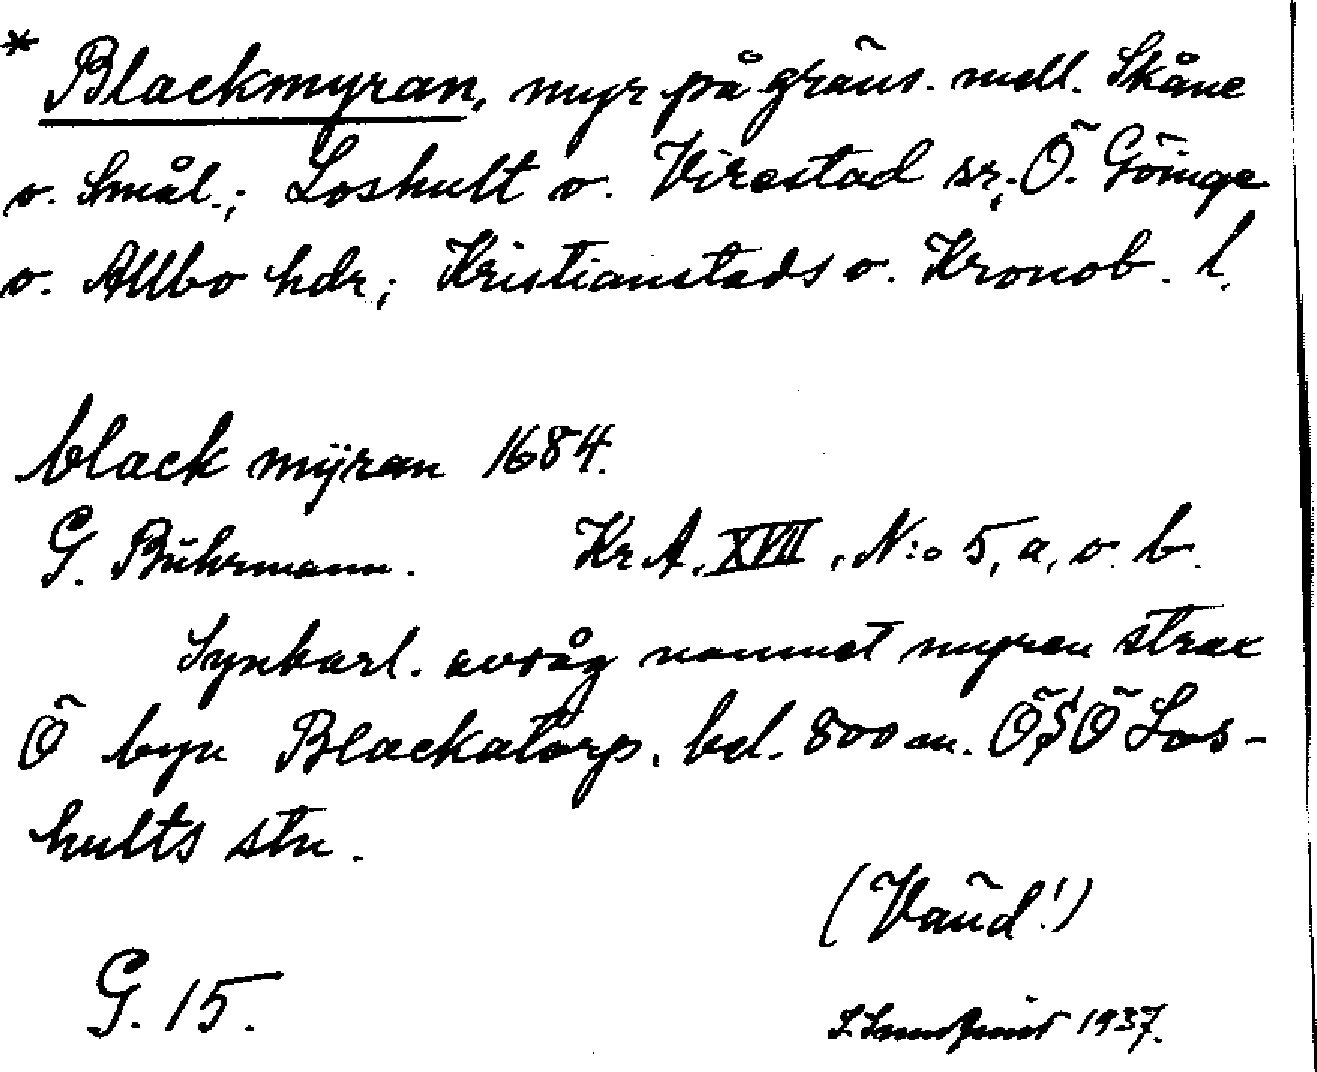 * Blackmyran, myr på gräns. mell. Skåne
o. Smål.; Loshult o. Virestad sr; Ö. Göinge
o. Allbo hdr; Kristianstads o. Kronob. l.
black mÿran 1684.
G. Bührmann. Kr A, XVII, N:o 5, a, o. b.
Synbarl. avsåg namnet myren strax
Ö byn Blackatorp, bel. 800 m. ÖSÖ Los-
hults stn.
(Vänd!)
G. 15.
1937.